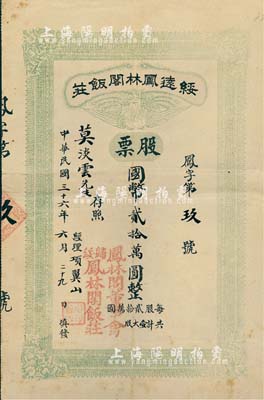 上海陽明拍賣
綏遠鳳林閣飯莊
股票
鳳字第玖號
國幣貳拾萬圓整
每股貳拾萬國
共計壹大股
莫淡雲先生存照
經理項翼山
中華民國三十六年六月二十九日填發
鳳林閣董事會
歸綏鳳林閣飯莊
鳳字第
玖
號
上海陽明拍賣